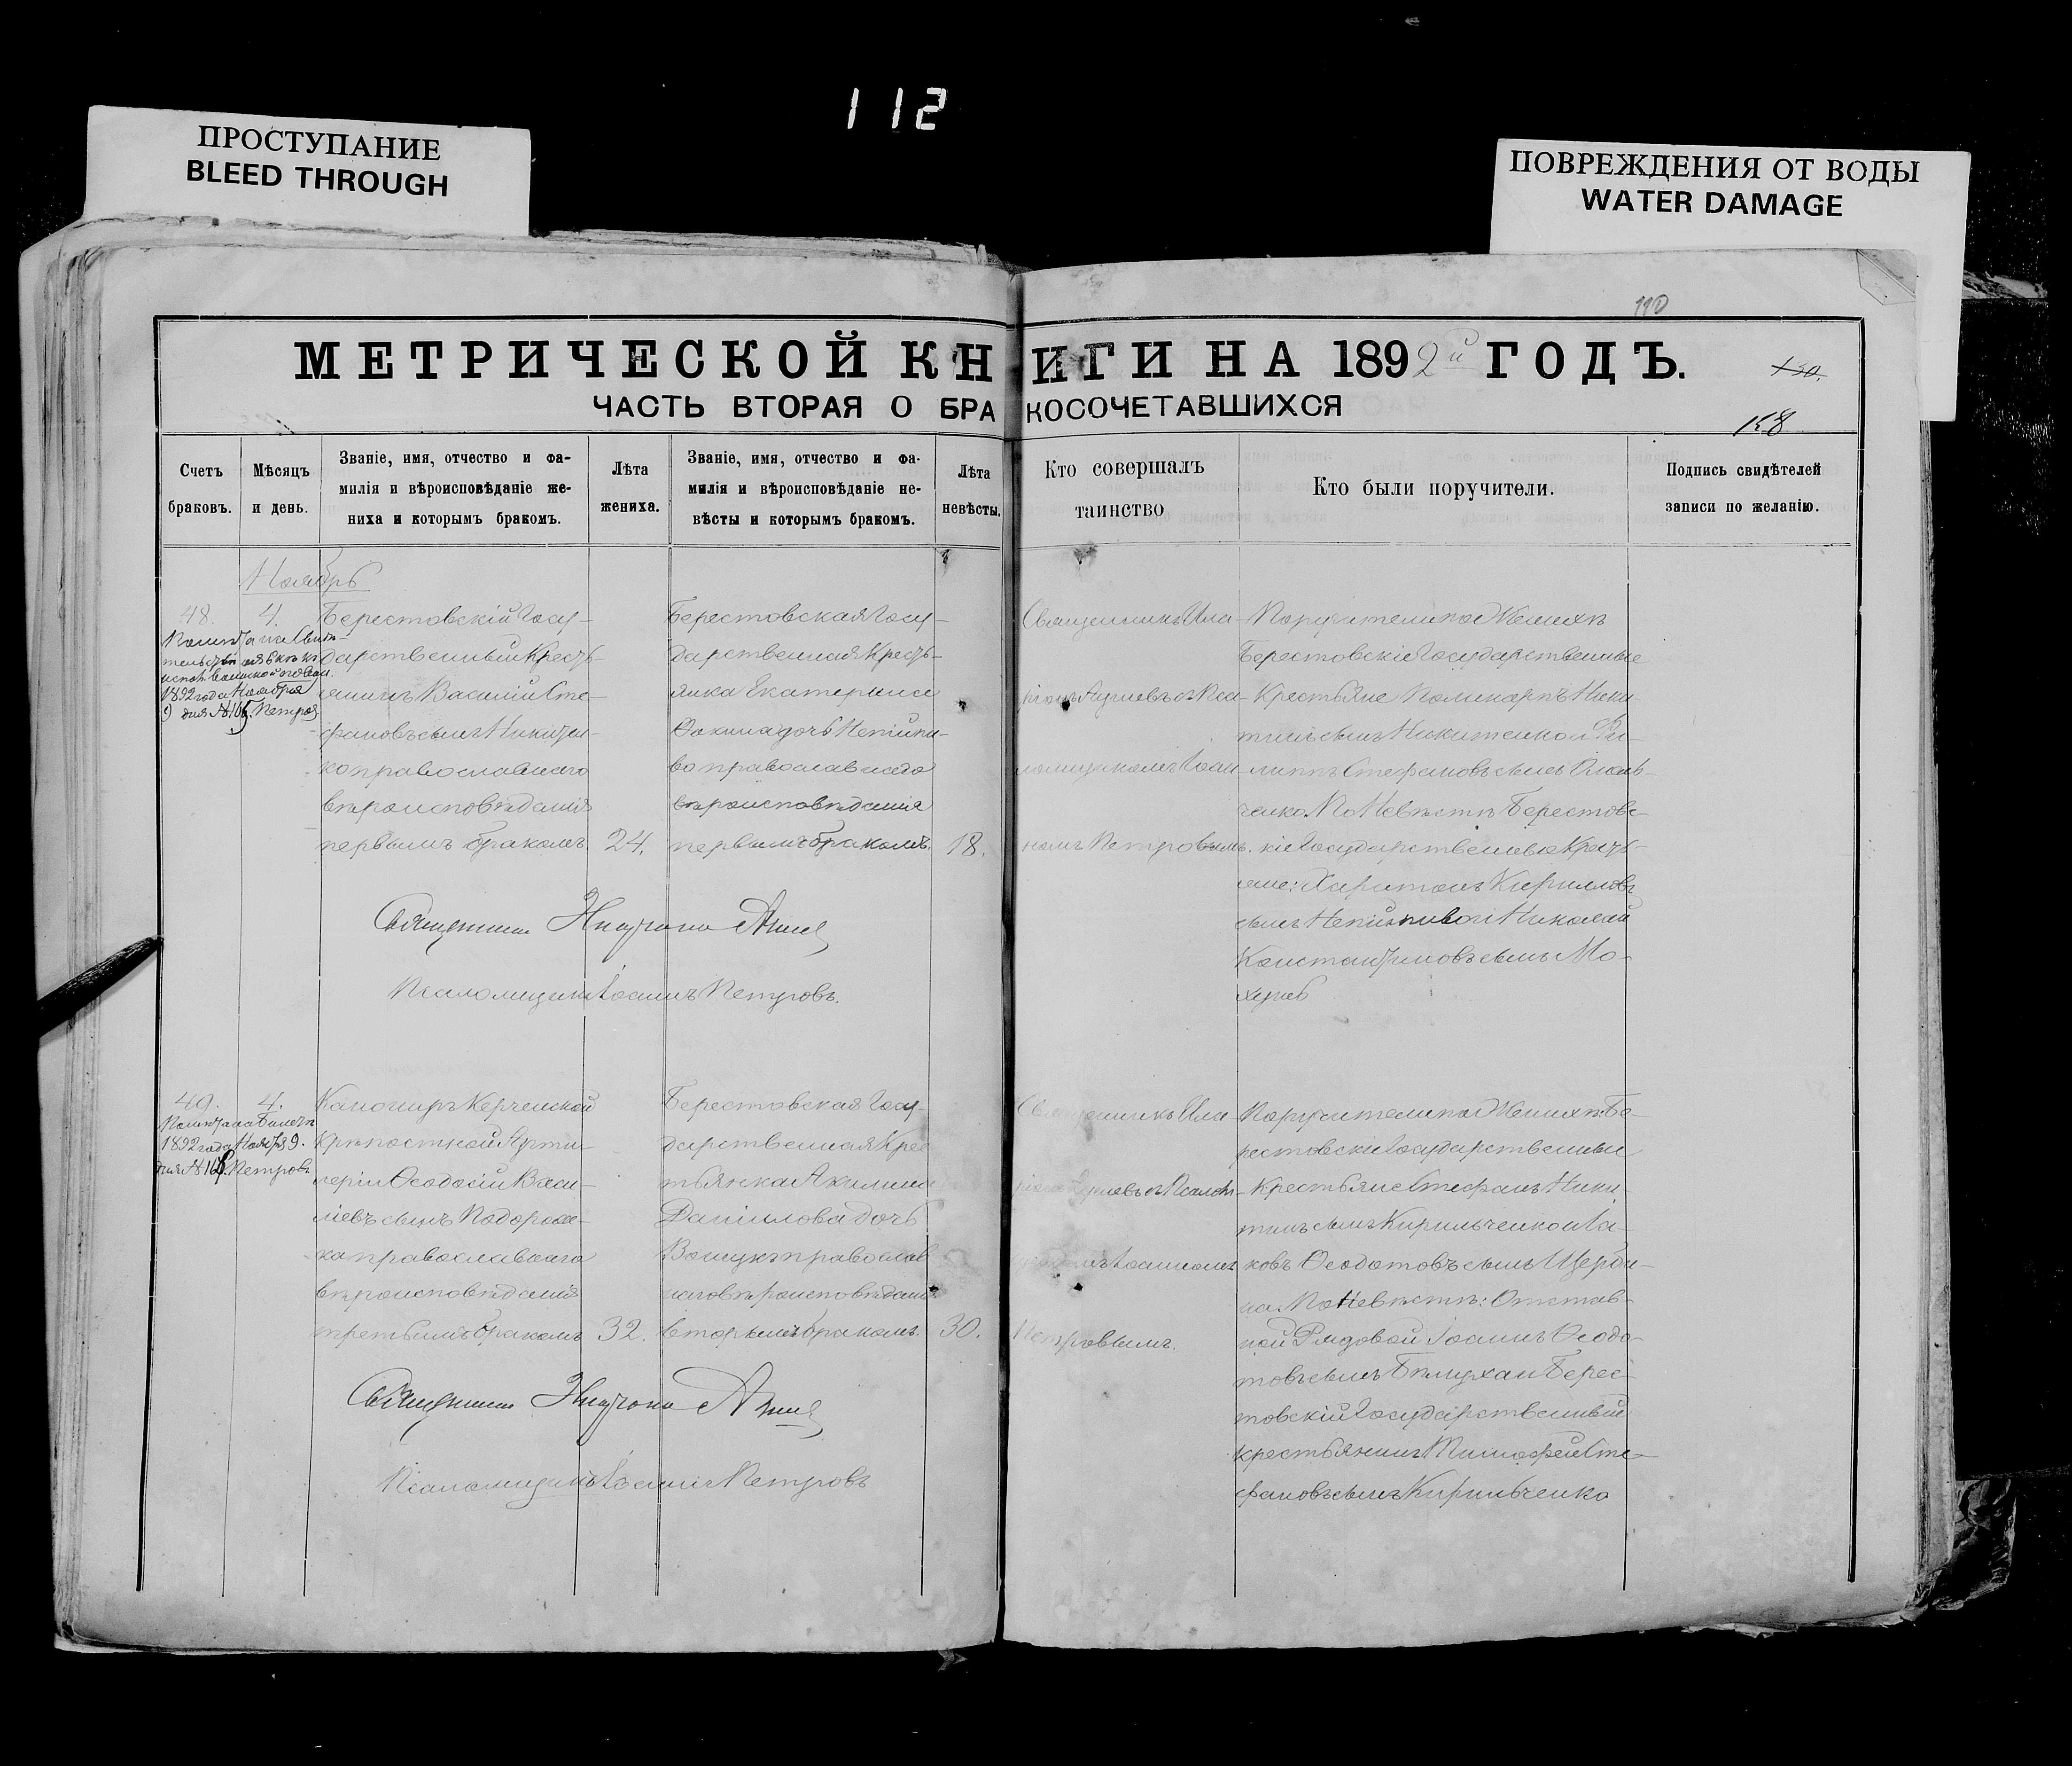 112
ПРОСТУПАНИЕ
BLEED THROUGH
ПОВРЕЖДЕНИЯ ОТ ВОДЫ
WATER DAMAGE
110
МЕТРИЧЕСКОЙ КНИГИ НА 1892й ГОДЪ.
130.
ЧАСТЬ ВТОРАЯ О БРАКОСОЧЕТАВШИХСЯ
158
Счетъ
браковъ.
Мѣсяцъ
и день.
Званіе, имя, отчество и фа-
милія и вѣроисповѣданіе же-
ниха и которымъ бракомъ.
Лѣта
жениха.
Званіе, имя, отчество и фа-
милія и вѣроисповѣданіе не-
вѣсты и которымъ бракомъ.
Лѣта
невѣсты.
Кто совершалъ
таинство
Кто были поручители.
Подпись свидѣтелей
записи по желанію.
Ноябрь
48.
4.
1892 года Ноября
9 дня Петров
Берестовскій Госу-
дарственный Кресть-
янинъ Василій Сте-
фановъ сынъ Никитен-
ко православнаго
вѣроисповѣданія
первымъ бракомъ.
24.
Берестовская Госу-
дарственная Кресть-
янка Екатерина
Фокина дочь Непійпи-
во православнаго
вѣроисповѣданія
первымъ бракомъ.
18.
Священникъ Ила-
ріонъ съ Пса-
ломщикомъ Іоан-
номъ Петровымъ.
Поручители по Женихѣ
Берестовскіе Государственные
Крестьяне Поликарпъ Ники-
тинъ сынъ Никитенко и Фи-
липпъ Стефановъ сынъ
ченко По Невѣстѣ Берестовс-
кіе Государственные Кресть-
яне: Харитонъ Кирилловъ
сынъ Непійпиво и Николай
Константиновъ сынъ Мо-
Священникъ
Псаломщикъ Іоаннъ Петровъ.
49.
4.
1892 года Ноября 9.
дня Петровъ
Канониръ Керченской
Крѣпостной Арти-
леріи Ѳеодосій Васи-
ліевъ сынъ Подорож-
ко православнаго
вѣроисповѣданія
третьимъ бракомъ
32.
Берестовская Госу-
дарственная Крес
тьянка Акилина
Даніилова дочь
православ
наго вѣроисповѣданія
вторымъ бракомъ.
30.
Священникъ Ила-
съ Псалом
Іоанномъ
Петровымъ.
Поручители по Женихѣ Бе-
рестовскіе Государственные
Крестьяне Стефанъ Ники-
тинъ сынъ Кирильченко и Іа-
ковъ Ѳеодотовъ сынъ Щерби-
на По Невѣстѣ: Отстав-
ной Рядовой Іоаннъ Ѳеодо-
товъ сынъ Берес-
товскій Государственный
крестьянинъ Тимофей Сте-
фановъ сынъ Кирильченко
Священникъ
Псаломщикъ Іоаннъ Петровъ